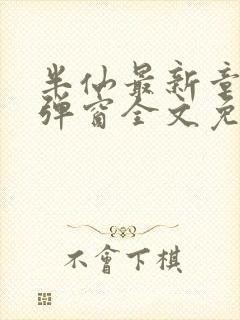 半仙最新章
弹窗全文免
不會下棋